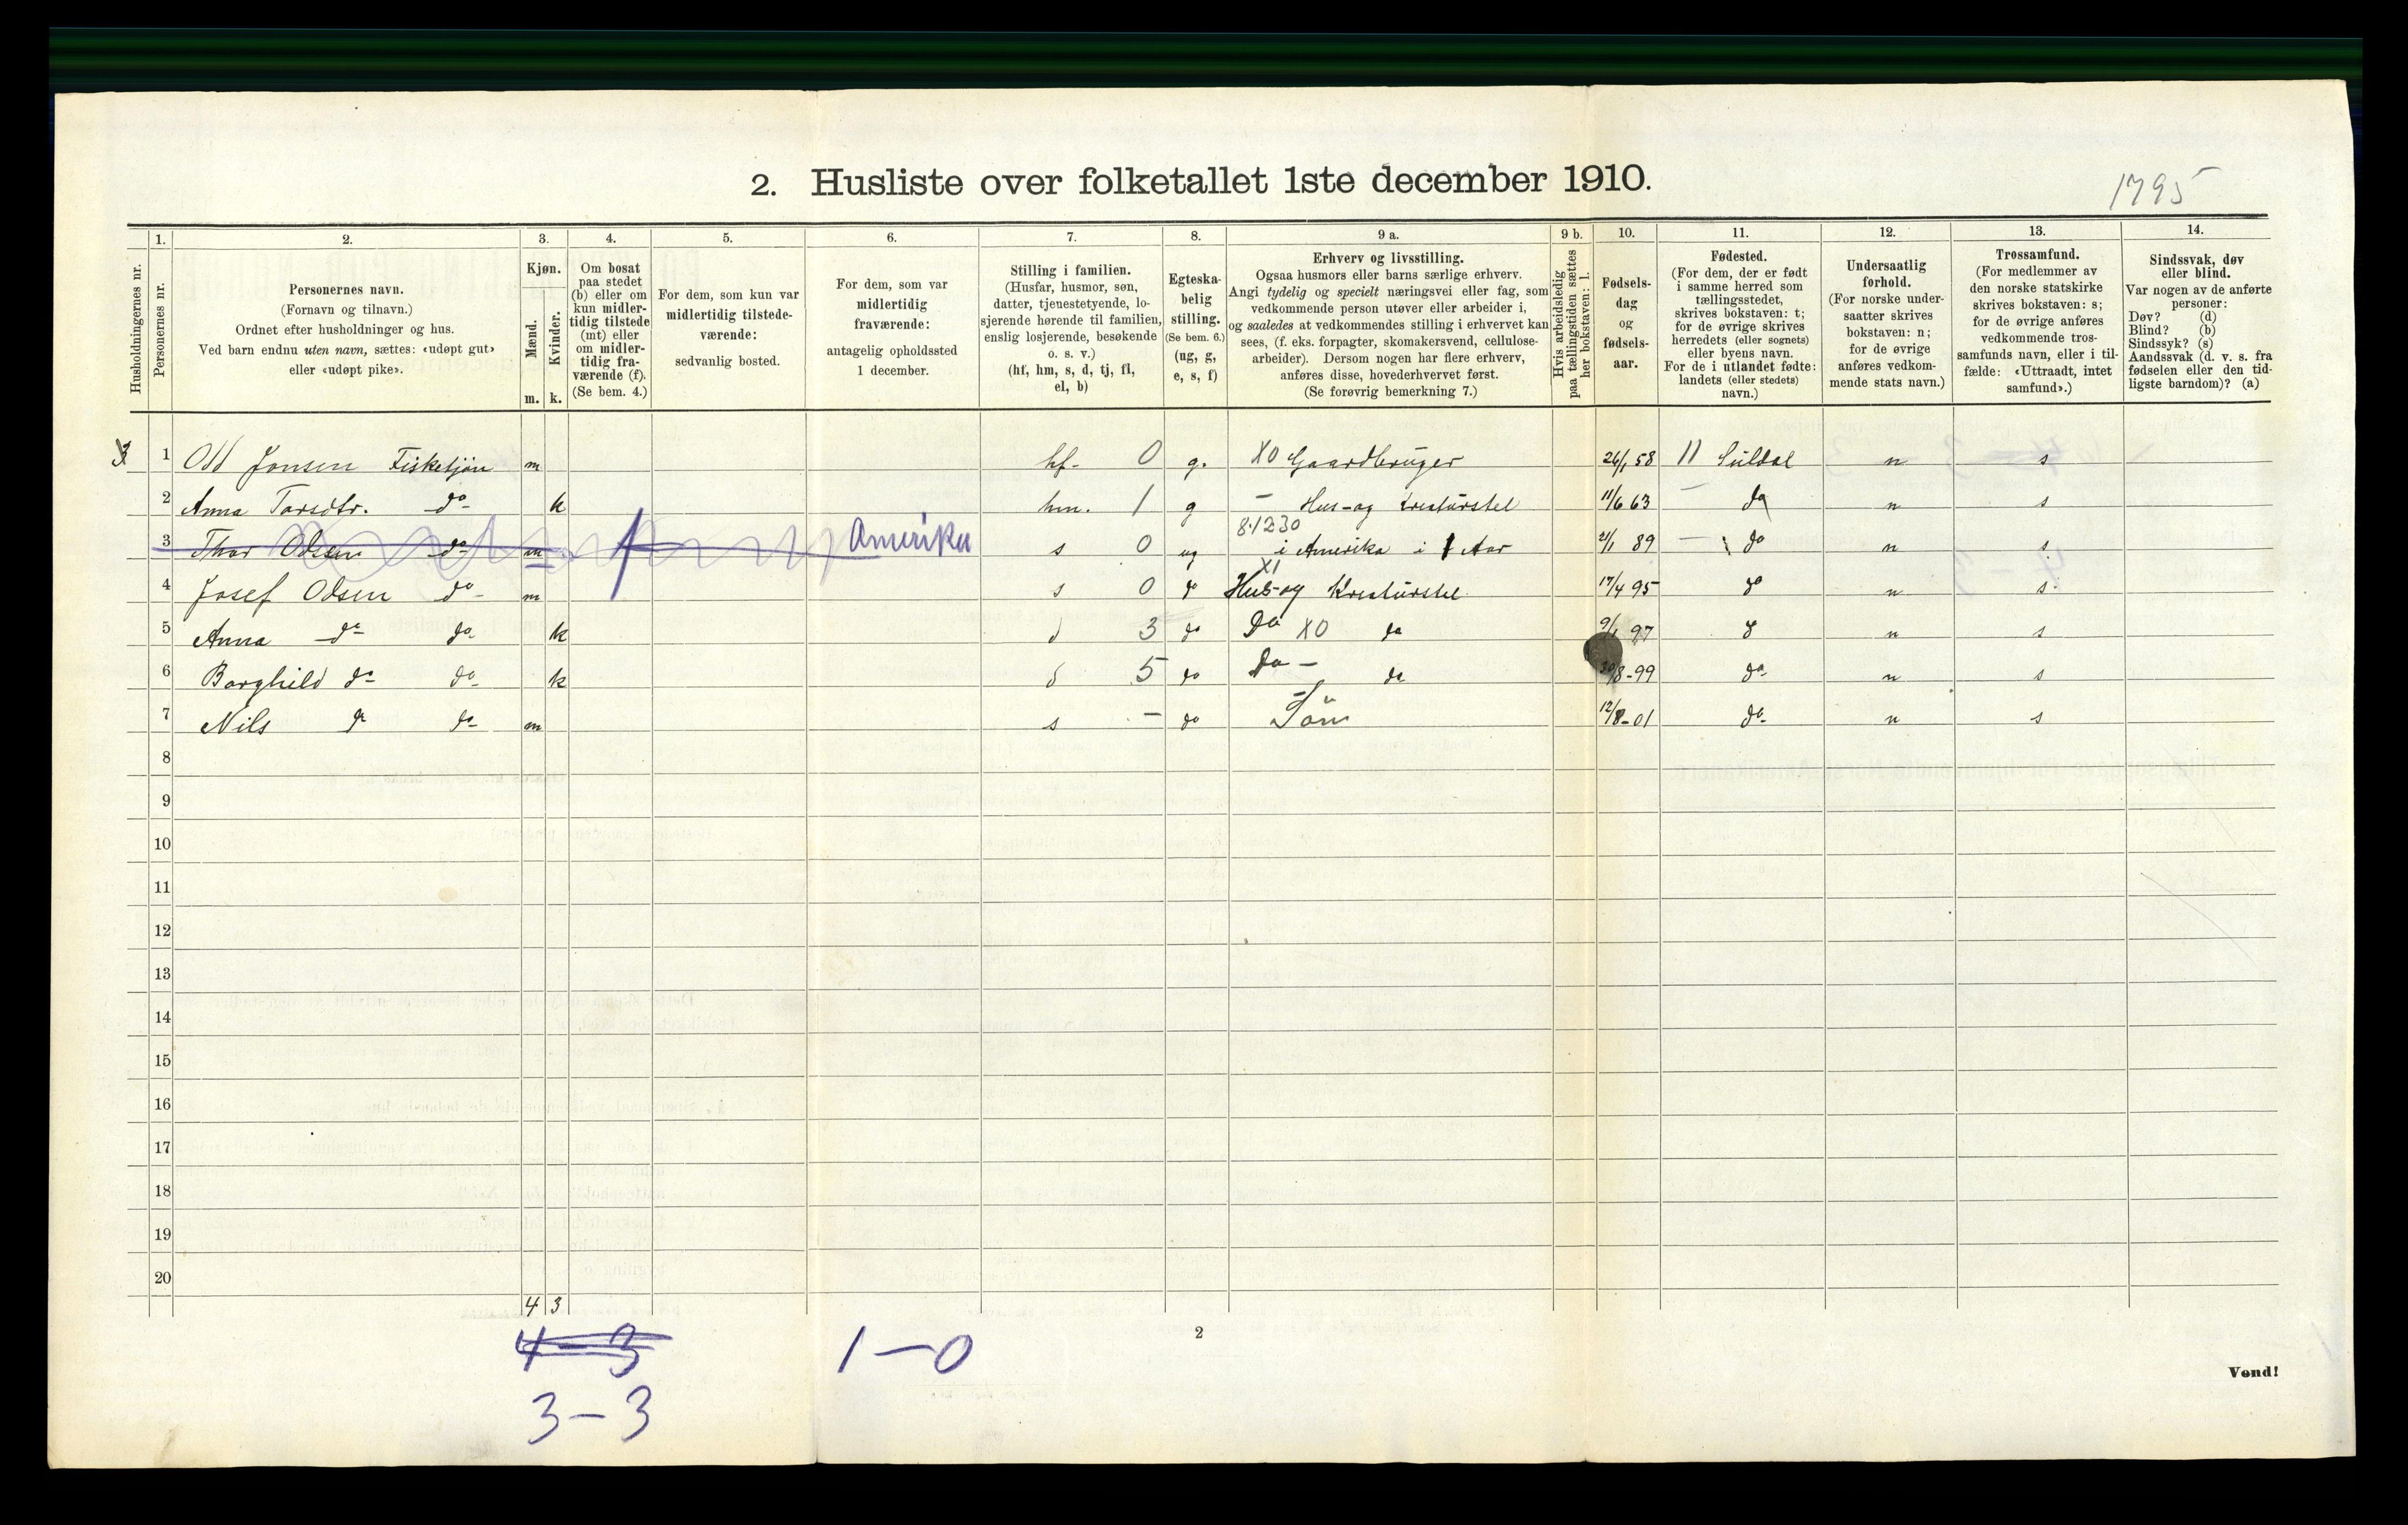 2. Husliste over folketallet 1ste december 1910.
1795
Husholdningernes nr.
1.
Personernes nr.
2.
Personernes navn.
(Fornavn og tilnavn.)
Ordnet efter husholdninger og hus.
Ved barn endnu uten navn, sættes: «udøpt gut»
eller «udøpt pike».
3.
Kjøn.
Mænd.
Kvinder.
m. k.
4.
Om bosat
paa stedet
(b) eller om
kun midler-
tidig tilstede
(mt) eller
om midler-
tidig fra-
værende (f).
(Se bem. 4.)
5.
For dem, som kun var
midlertidig tilstede-
værende:
sedvanlig bosted.
6.
For dem, som var
midlertidig
fraværende:
antagelig opholdssted
1 december.
7.
Stilling i familien.
(Husfar, husmor, søn,
datter, tjenestetyende, lo-
sjerende hørende til familien,
enslig losjerende, besøkende
o. s. v.)
(hf, hm, s, d, tj, fl,
el, b)
8.
Egteska-
belig
stilling.
(Se bem. 6.)
(ug, g,
e, s, f)
9 a.
Erhverv og livsstilling.
Ogsaa husmors eller barns særlige erhverv.
Angi tydelig og specielt næringsvei eller fag, som
vedkommende person utøver eller arbeider i,
og saaledes at vedkommendes stilling i erhvervet kan
sees, (f. eks. forpagter, skomakersvend, cellulose-
arbeider). Dersom nogen har flere erhverv,
anføres disse, hovederhvervet først.
(Se forøvrig bemerkning 7.)
9 b.
Hvis arbeidsledig
paa tællingstiden sættes
her bokstaven: l.
10.
Fødsels-
dag
og
fødsels-
aar.
11.
Fødested.
(For dem, der er født
i samme herred som
tællingsstedet,
skrives bokstaven: t;
for de øvrige skrives
herredets (eller sognets)
eller byens navn.
For de i utlandet fødte:
landets (eller stedets)
navn.)
12.
Undersaatlig
forhold.
(For norske under-
saatter skrives
bokstaven: n;
for de øvrige
anføres vedkom-
mende stats navn.)
13.
Trossamfund.
(For medlemmer av
den norske statskirke
skrives bokstaven: s;
for de øvrige anføres
vedkommende tros-
samfunds navn, eller i til-
fælde: «Uttraadt, intet
samfund».)
14.
Sindssvak, døv
eller blind.
Var nogen av de anførte
personer:
Døv? (d)
Blind? (b)
Sindssyk? (s)
Aandssvak (d. v. s. fra
fødselen eller den tid-
ligste barndom)? (a)
3 1 Odd Jonsen Fisketjön m hf- 0 g. X0 Gaardbruger 26/1 58 11 Suldal n s
2 Anna Tarsdtr. do k hm. 1 g – Hus-og Kreaturstel 11/6 63 – do n s
3 Thor Odsen do m f Amerika s 0 ug 8.1230 i Amerika i 1 Aar 21/1 89 – do n s
4 Josef Odsen do m s 0 do X1 Hus-og Kreaturstel 17/4 95 do n s
5 Anna do do k d 3 do Do X0 do 97 do n s
6 Borghild do do k d 5 do Do – do 8-99 do n s
7 Nils do do m s – do – Sön 12/8-01 do n s
8
9
10
11
12
13
14
15
16
17
18
19
20
4 3
4-3 1-0
3-3
2
Vend!